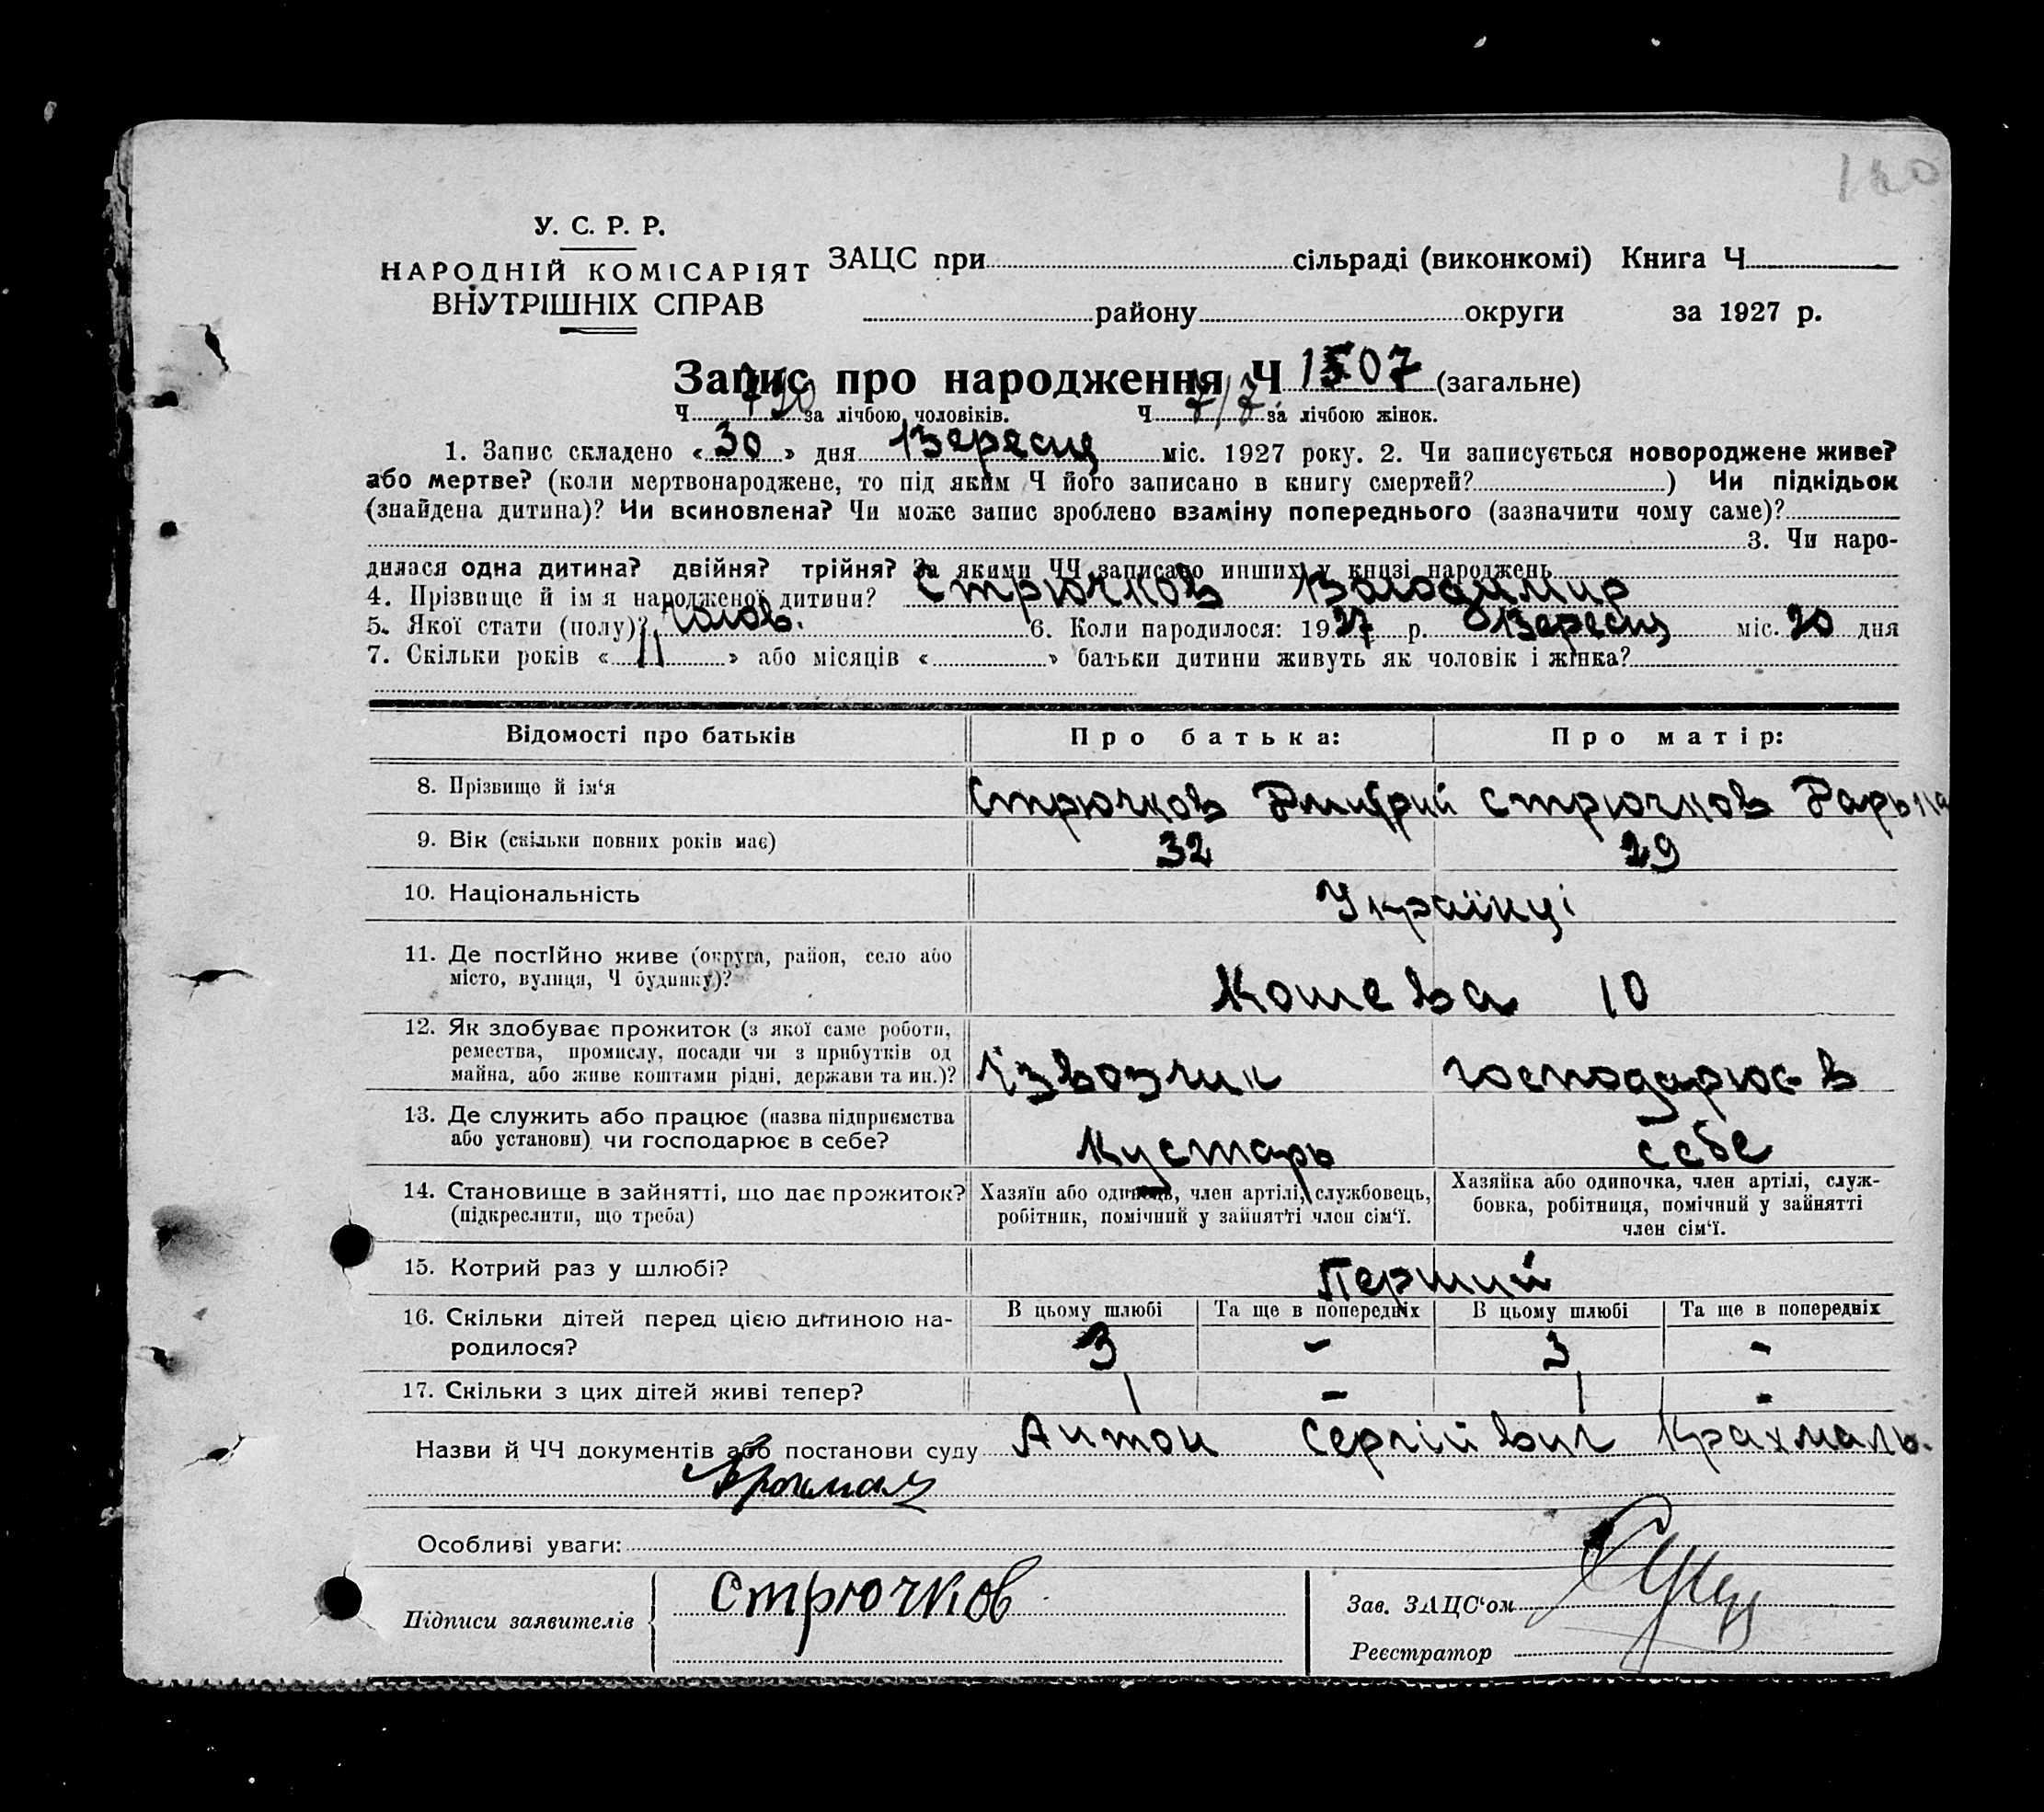 120
У. С. Р. Р.
НАРОДНІЙ КОМІСАРІЯТ
ВНУТРІШНІХ СПРАВ
ЗАЦС при сільраді (виконкомі) Книга Ч
району округи за 1927 р.
Запис про народження Ч 1507 (загальне)
Ч 790 за лічбою чоловіків. Ч 717 за лічбою жінок.
1. Запис складено «30» дня Вересня міс. 1927 року. 2. Чи записується новороджене живе?
або мертве? (коли мертвонароджене, то під яким Ч його записано в книгу смертей? ) Чи підкідьок
(знайдена дитина)? Чи всиновлена? Чи може запис зроблено взаміну попереднього (зазначити чому саме)?
3. Чи наро-
дилася одна дитина? двійня? трійня? За якими ЧЧ записано инших у книзі народжень
4. Прізвище й ім я народженої дитини? Стрючков Володимир
5. Якої стати (полу)? Чолов. 6. Коли народилося: 1927 р. Вересня міс. 20 дня
7. Скільки років «11» або місяців « » батьки дитини живуть як чоловік і жінка?
Відомості про батьків Про батька: Про матір:
8. Прізвище й ім‘я Стрючков Дмитрий Стрючков Дарья
9. Вік (скільки повних років має) 32 29
10. Національність Українці
11. Де постійно живе (округа, район, село або
місто, вулиця, Ч будинку)? Кошева 10
12. Як здобуває прожиток (з якої саме роботи,
ремества, промислу, посади чи з прибутків од
майна, або живе коштами рідні, держави та ин.)? Ізвозчик господарює в
13. Де служить або працює (назва підприємства
або установи) чи господарює в себе? Кустарь себе
14. Становище в зайнятті, що дає прожиток?
(підкреслити, що треба)
Хазяїн або одинець, член артілі, службовець,
робітник, помічний у зайнятті член сім‘ї.
Хазяйка або одиночка, член артілі, служ-
бовка, робітниця, помічний у зайнятті
член сім‘ї.
15. Котрий раз у шлюбі? Перший
16. Скільки дітей перед цією дитиною на-
родилося?
В цьому шлюбі Та ще в попередніх В цьому шлюбі Та ще в попередніх
3 - 3 -
17. Скільки з цих дітей живі тепер? 1 - 1 -
Назви й ЧЧ документів або постанови суду Антон Сергійвич Крахмаль.
Особливі уваги:
Підписи заявителів Стрючков
Зав. ЗАЦС‘ом
Реєстратор